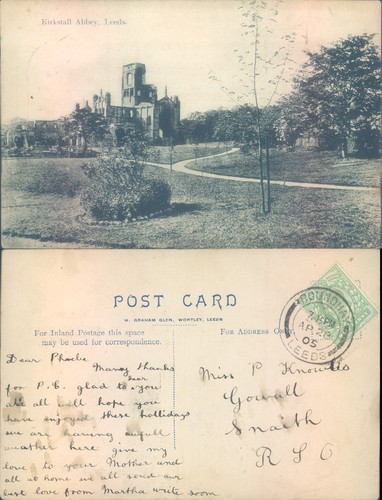 Kirkstall Abbey, Leeds.
POST CARD
W. GRAHAM GLEN, WORTLEY, LEEDS
For Inland Postage this space
may be used for correspondence.
For Address Only
AP 23
05
LEEDS
Dear Phoebe
Many thanks
for P.C. glad to hear you
are all well hope you
have enjoyed these hollidays
we are having awfull
weather here give my
love to your Mother and
all at home we all send our
best love from Martha write soon
Miss P Knowles
Gowall
Snaith
R S O